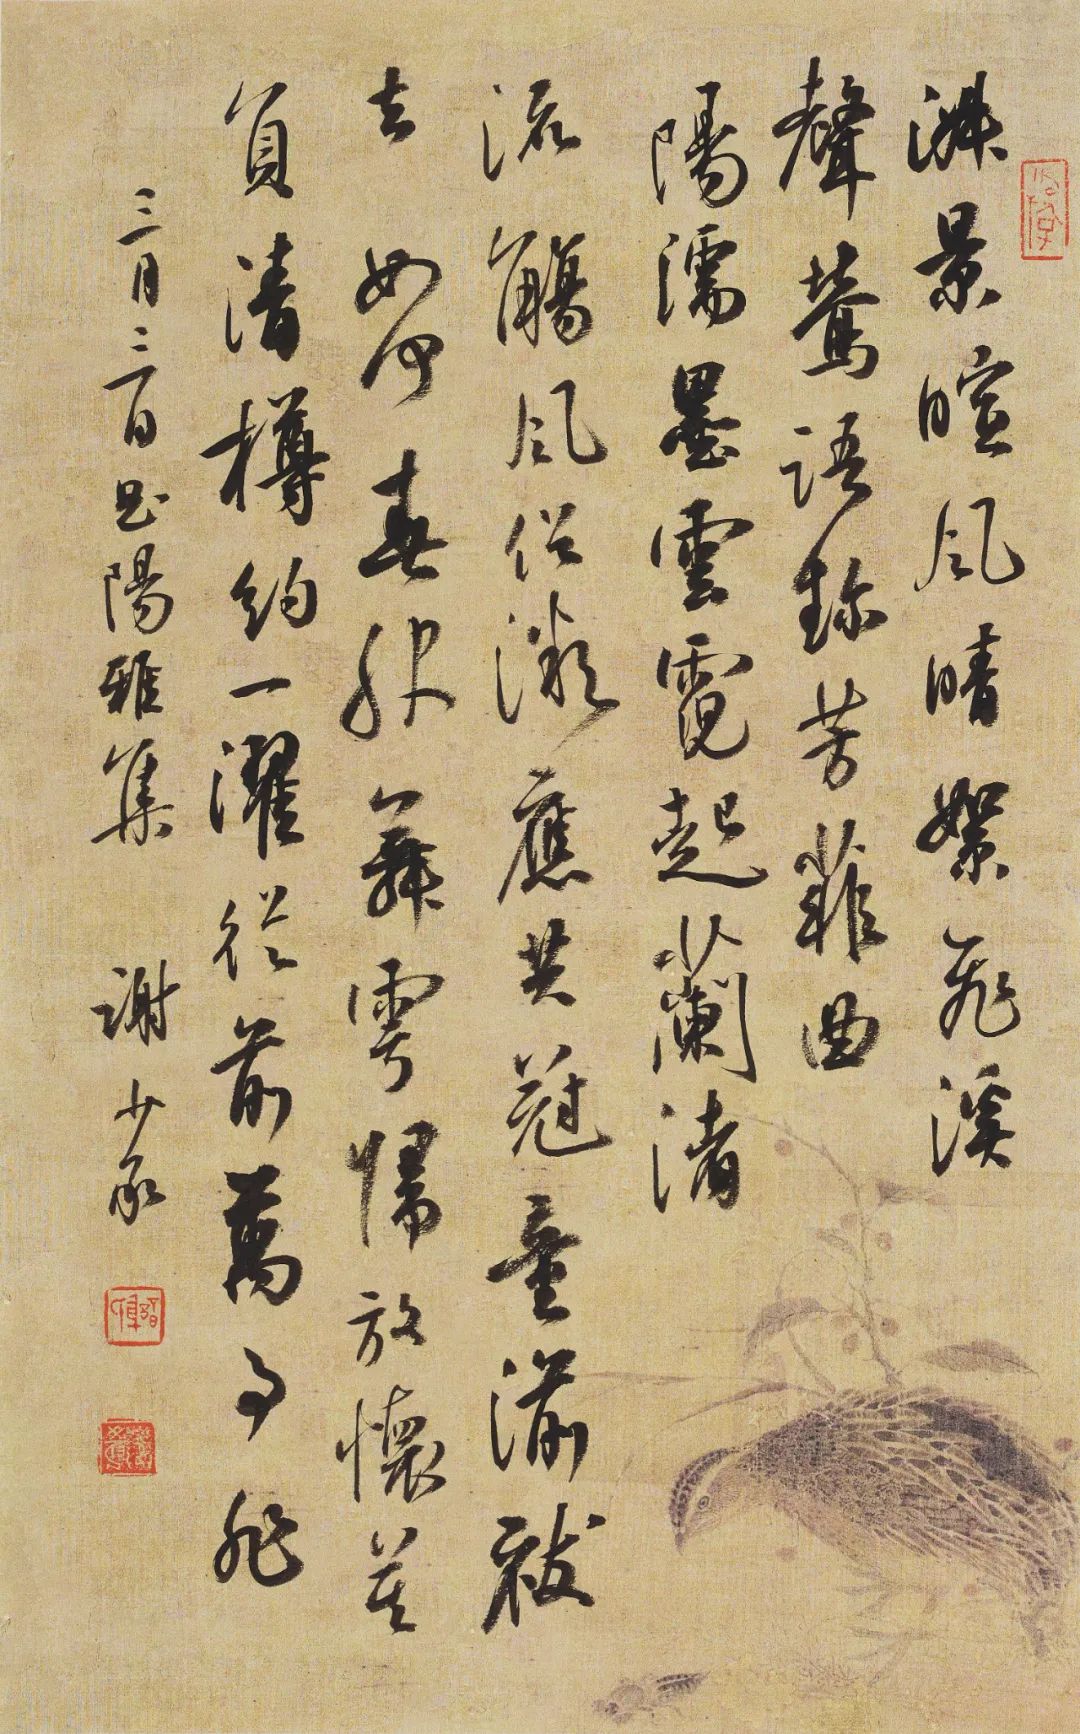 淑景暄風晴絮飛溪
聲鶯語珍芳菲曲
陽濡墨雲霓起蘭渚
流觴風俗微應共冠童湔祓
去如何春服舞雩歸放懷莫
負清樽約一濯從前萬事非
三月三日曲陽雅集 謝少承